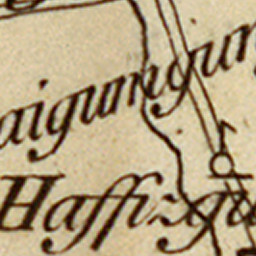 aigumgur
Haffizgu